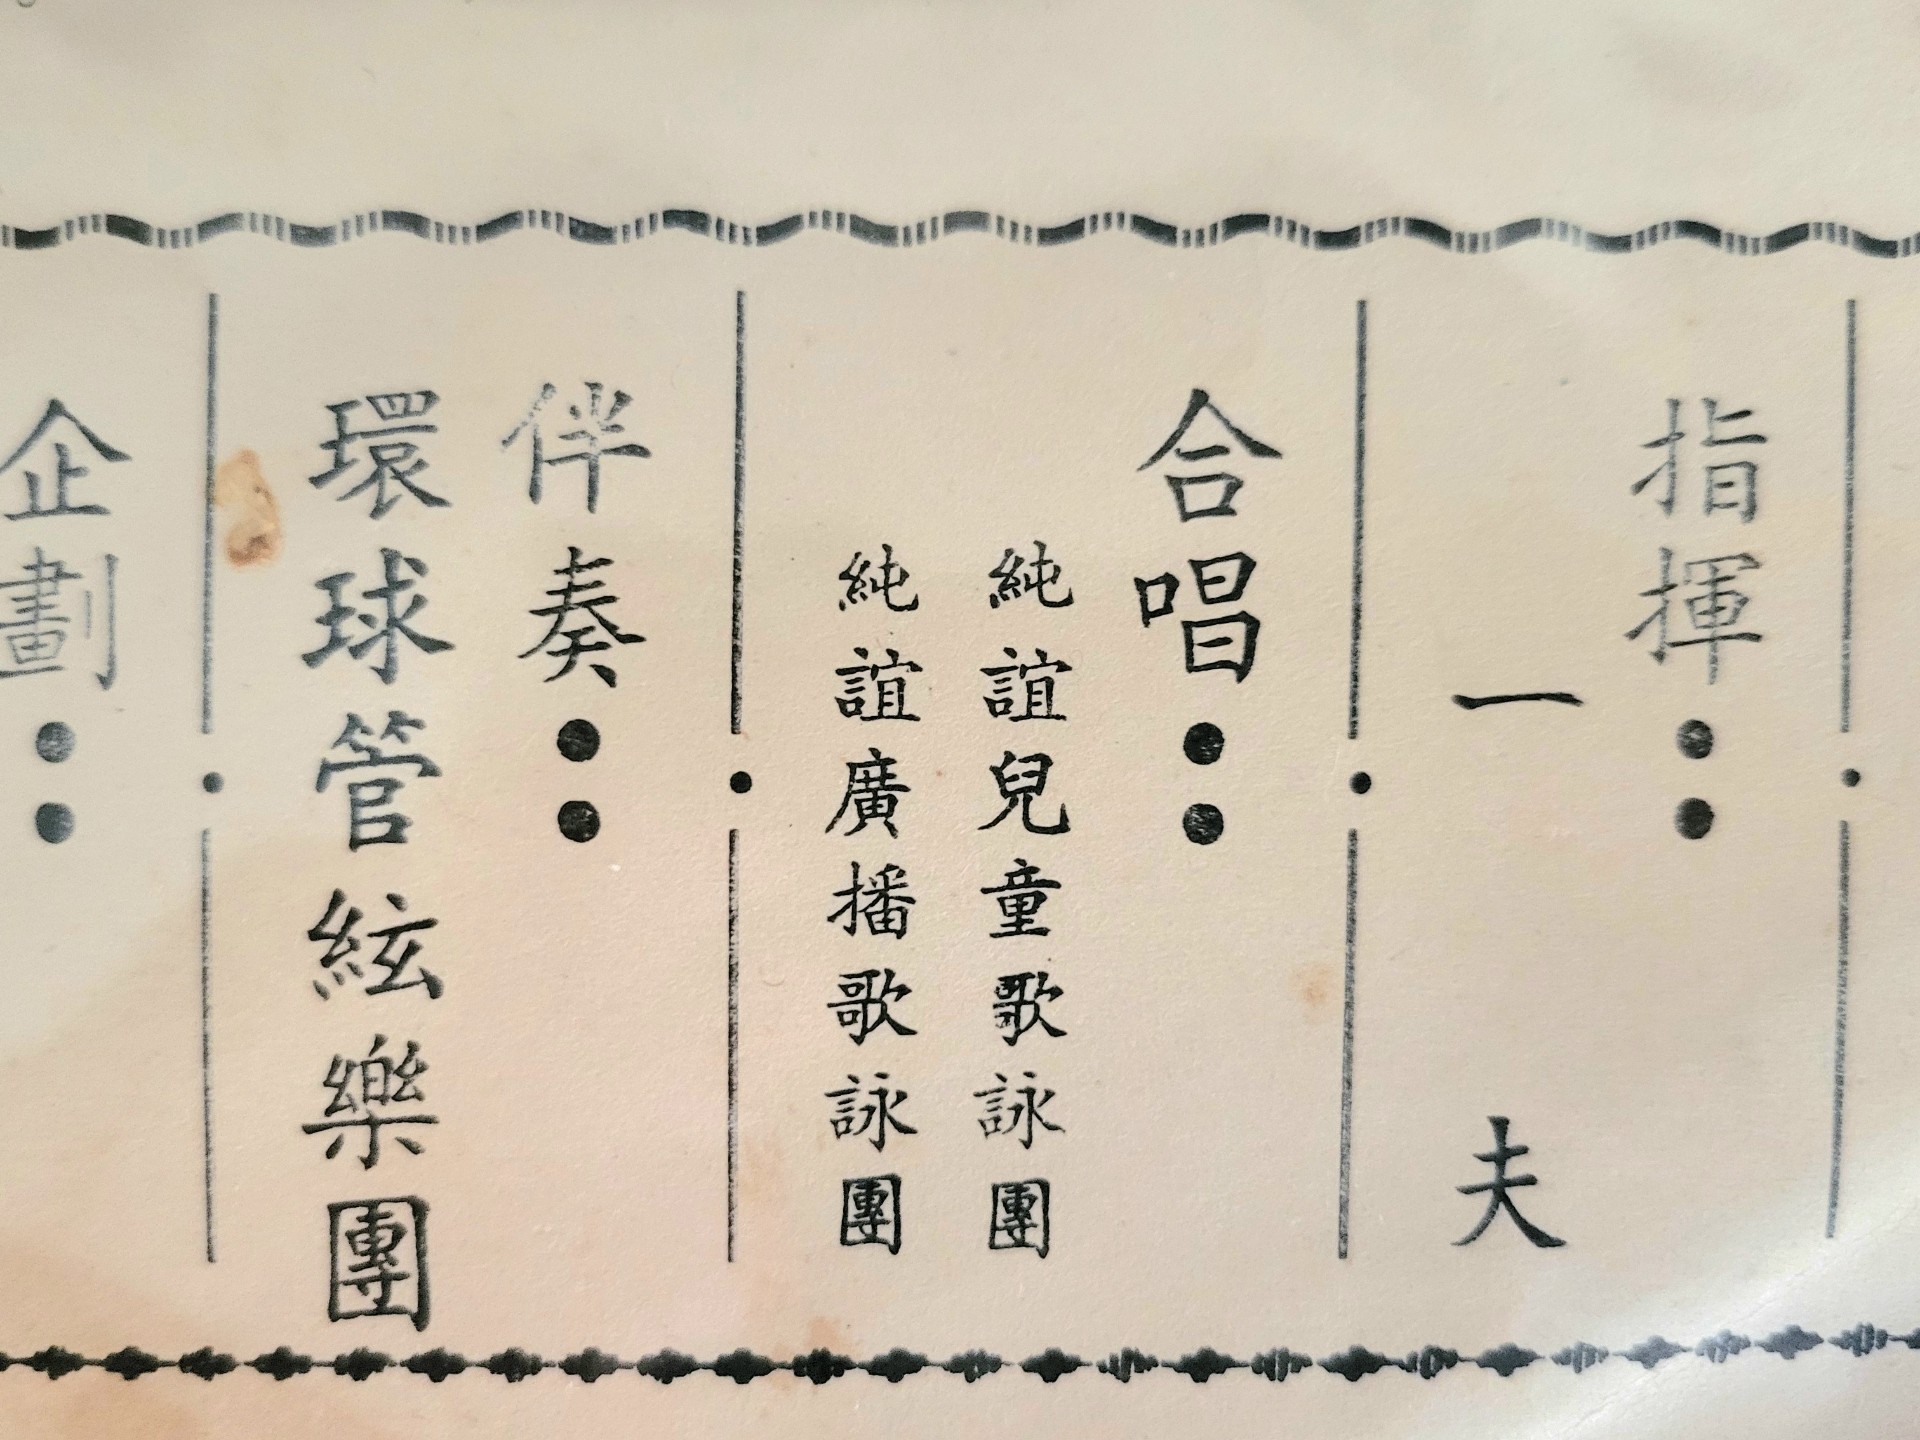 指揮：
一夫
合唱：
純誼兒童歌詠團
純誼廣播歌詠團
伴奏：
環球管絃樂團
企劃：